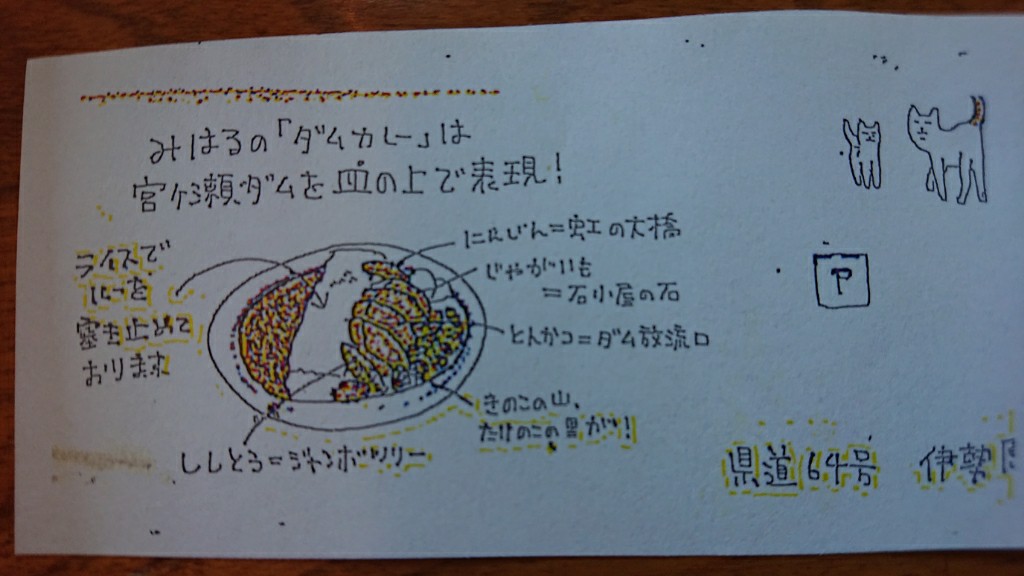 みはるの「ダムカレー」は
宮ヶ瀬ダムを皿の上で表現!
ライスで
ルーを
塞き止めて
おります
にんじん=虹の大橋
じゃがいも
=石小屋の石
とんかつ=ダム放流口
きのこの山、
たけのこの里が!
ししとう=ジャンボツリー
P
県道64号
伊勢